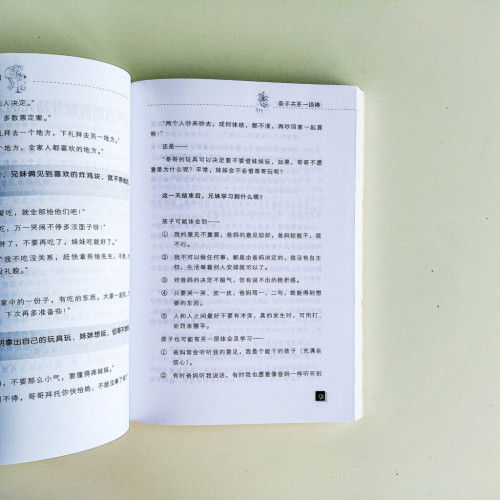 人决定。”
多数票定案。”
礼拜去一个地方，下礼拜去另一地方。”
个地方，全家人都喜欢的地方。”
，兄妹俩见到喜欢的炸鸡块，就不停地吃
爱吃，就全部给他们吧！”
吃，万一哭闹不停多没面子呀！”
胖了，不要再吃了，妹妹吃就好了。”
“我不吃没关系，赶快拿些给先生，不
没礼貌。”
家中的一份子，有吃的东西，大家一起吃
下次再多准备些！”
明拿出自己的玩具玩，妹妹想玩，但哥不
，不要那么小气，要懂得疼妹妹。”
不停，哥哥拜托你快给她，不就没事了吗
亲子关系一级棒
“两个人吵来吵去，成何体统，都不准，再吵回家一起算
帐！”
还是——
“哥哥的玩具可以决定要不要借妹妹玩，如果，哥哥不愿
意是为什么呢？平常，妹妹会不会借哥哥玩呢？
这一天结束后，兄妹学习到什么呢？
孩子可能体会到——
① 我的意见不重要，爸妈的意见较好，爸妈较能干，我
不行。
② 我不可以做任何事，都是由爸妈决定的，我没有自主
权，生活等着别人安排就可以了。
③ 对爸妈的决定不服气，但有说不出的挫折感。
④ 只要哭一哭、皮一皮，爸妈骂一、二句，就能得到想
要的东西。
⑤ 人和人之间最好不要有冲突，真的发生时，可用打、
处罚来摆平。
孩子也可能有另一层体会及学习——
① 爸妈常会听听我的意见，我是个能干的孩子（充满自
信心）。
② 有时爸妈听我说话，有时我也愿意像爸妈一样听听别